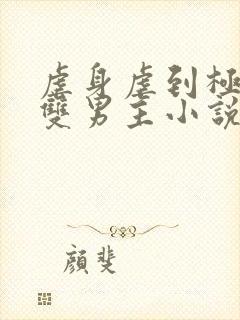 虐身虐到極
雙男主小說
顏斐